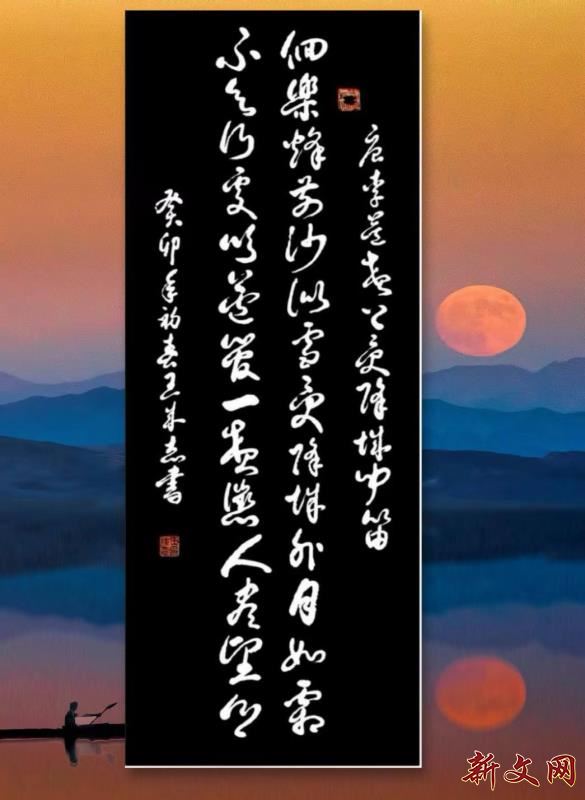 唐李益夜上受降城闻笛
回樂烽前沙似雪受降城外月如霜
不知何處吹蘆管一夜征人盡望鄉
癸卯年初春王書
新文网